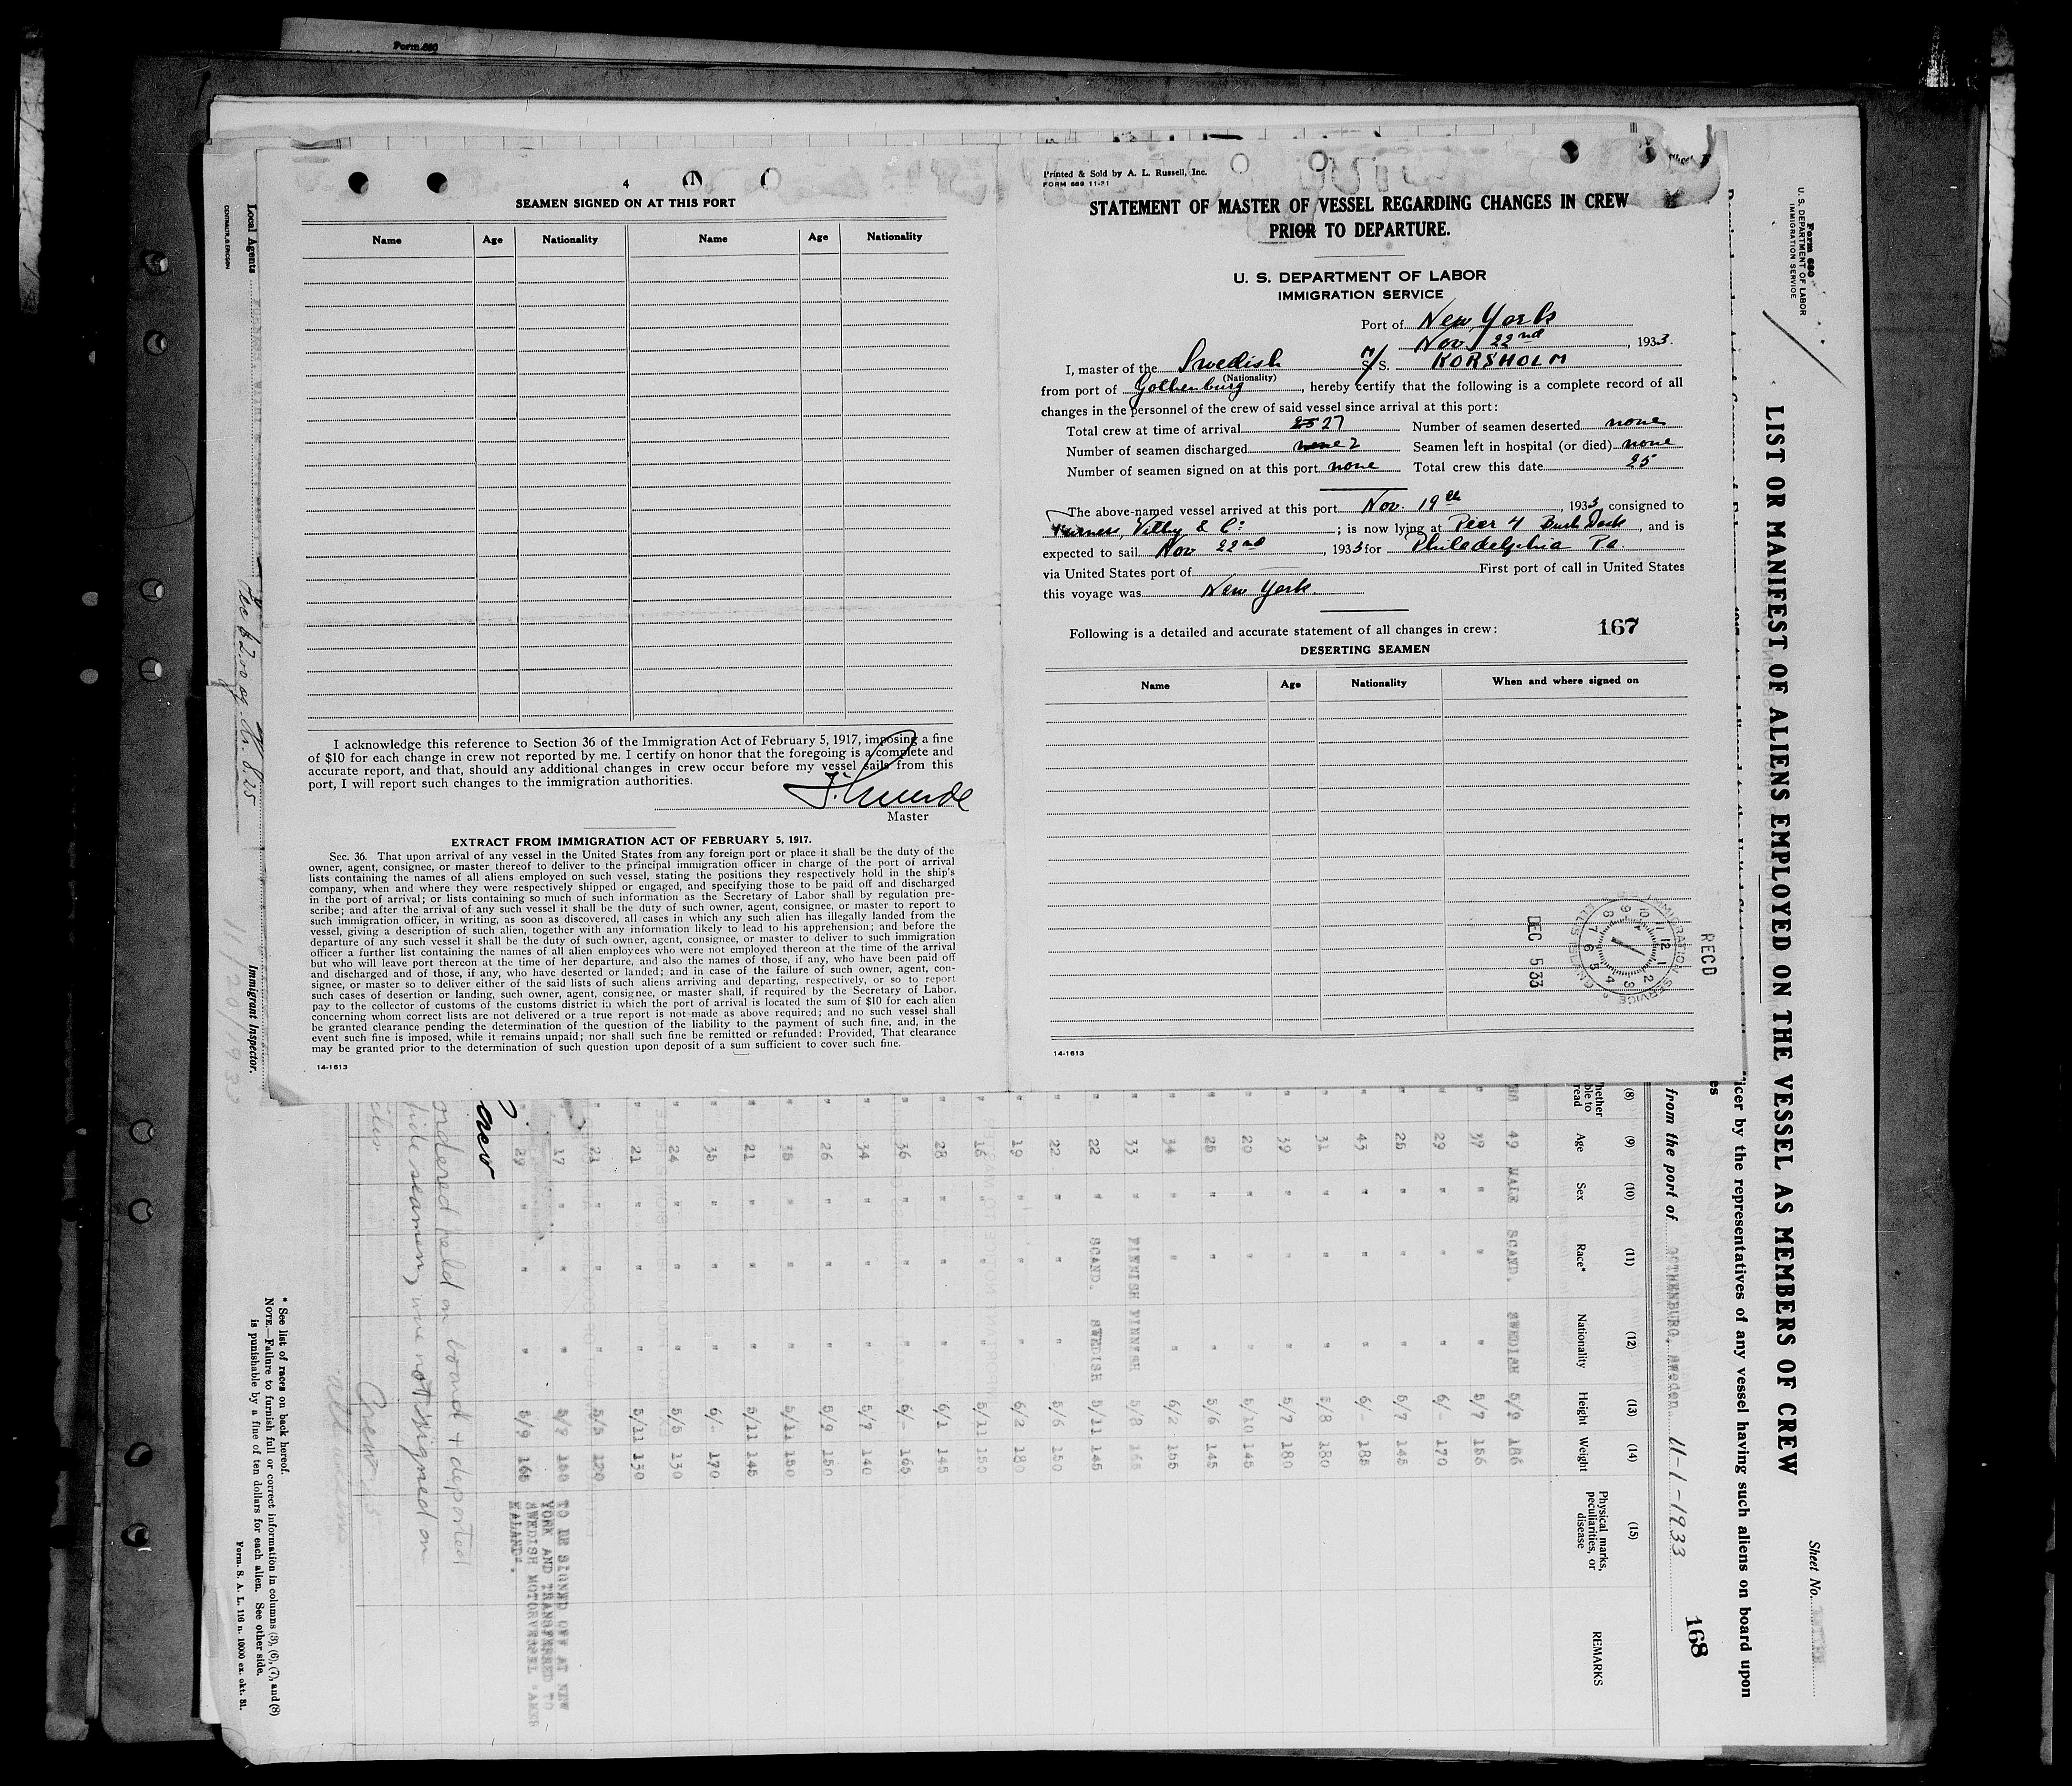 Form 680
4
SEAMEN SIGNED ON AT THIS PORT
Name Age Nationality Name Age Nationality
I acknowledge this reference to Section 36 of the Immigration Act of February 5, 1917, imposing a fine
of $10 for each change in crew not reported by me. I certify on honor that the foregoing is a complete and
accurate report, and that, should any additional changes in crew occur before my vessel sails from this
port, I will report such changes to the immigration authorities.
Master
EXTRACT FROM IMMIGRATION ACT OF FEBRUARY 5, 1917.
Sec. 36. That upon arrival of any vessel in the United States from any foreign port or place it shall be the duty of the
owner, agent, consignee, or master thereof to deliver to the principal immigration officer in charge of the port of arrival
lists containing the names of all aliens employed on such vessel, stating the positions they respectively hold in the ship's
company, when and where they were respectively shipped or engaged, and specifying those to be paid off and discharged
in the port of arrival; or lists containing so much of such information as the Secretary of Labor shall by regulation pre-
scribe; and after the arrival of any such vessel it shall be the duty of such owner, agent, consignee, or master to report to
such immigration officer, in writing, as soon as discovered, all cases in which any such alien has illegally landed from the
vessel, giving a description of such alien, together with any information likely to lead to his apprehension; and before the
departure of any such vessel it shall be the duty of such owner, agent, consignee, or master to deliver to such immigration
officer a further list containing the names of all alien employees who were not employed thereon at the time of the arrival
but who will leave port thereon at the time of her departure, and also the names of those, if any, who have been paid off
and discharged and of those, if any, who have deserted or landed; and in case of the failure of such owner, agent, con-
signee, or master so to deliver either of the said lists of such aliens arriving and departing, respectively, or so to report
such cases of desertion or landing, such owner, agent, consignee, or master shall, if required by the Secretary of Labor,
pay to the collector of customs of the customs district in which the port of arrival is located the sum of $10 for each alien
concerning whom correct lists are not delivered or a true report is not made as above required; and no such vessel shall
be granted clearance pending the determination of the question of the liability to the payment of such fine, and, in the
event such fine is imposed, while it remains unpaid; nor shall such fine be remitted or refunded: Provided, That clearance
may be granted prior to the determination of such question upon deposit of a sum sufficient to cover such fine.
14-1613
Printed & Sold by A. L. Russell, Inc.
FORM 689 11-31
STATEMENT OF MASTER OF VESSEL REGARDING CHANGES IN CREW
PRIOR TO DEPARTURE.
U. S. DEPARTMENT OF LABOR
IMMIGRATION SERVICE
Port of New York
Nov 22nd, 1933.
I, master of the Swedish M/S. KORSHOLM
(Nationality)
from port of Gothenburg, hereby certify that the following is a complete record of all
changes in the personnel of the crew of said vessel since arrival at this port:
Total crew at time of arrival 25 27 Number of seamen deserted none
Number of seamen discharged none 2 Seamen left in hospital (or died) none
Number of seamen signed on at this port none Total crew this date 25
The above-named vessel arrived at this port Nov. 19th, 1933 consigned to
Furness, Withy & Co; is now lying at Pier 4 Bush Dock, and is
expected to sail Nov 22nd, 1933 for Philadelphia Pa
via United States port of First port of call in United States
this voyage was New York.
Following is a detailed and accurate statement of all changes in crew: 167
DESERTING SEAMEN
Name Age Nationality When and where signed on
RECD
IMMIGRATION SERVICE ELLIS ISLAND
12 1 2 3 4 5 6 7 8 9 10 11
DEC 5 33
14-1613
Form 680
U. S. DEPARTMENT OF LABOR
IMMIGRATION SERVICE
LIST OR MANIFEST OF ALIENS EMPLOYED ON THE VESSEL AS MEMBERS OF CREW
Sheet No.
icer by the representatives of any vessel having such aliens on board upon
es
from the port of GOTHENBURG, Sweden 11-1-1933
168
(8) (9) (10) (11) (12) (13) (14) (15)
hether ble to read Age Sex Race* Nationality Height Weight Physical marks, peculiarities, or disease REMARKS
49 MALE SCAND. SWEDISH 5/9 186
" 39 " " " 5/7 156
" 29 " " " 6/- 170
" 25 " " " 6/7 145
" 43 " " " 6/- 185
" 31 " " " 5/8 180
" 39 " " " 5/7 180
" 20 " " " 5/10 145
" 25 " " " 5/6 145
" 34 " " " 6/2 155
" 33 " FINNISH FINNISH 5/8 165
" 22 " SCAND. SWEDISH 5/11 145
" 22 " " " 5/6 150
" 19 " " " 6/2 180
" 16 " " " 5/11 150
" 28 " " " 6/1 145
" 36 " " " 6/- 165
" 34 " " " 5/7 140
" 26 " " " 5/9 150
" 35 " " " 5/11 150
" 21 " " " 5/11 145
" 35 " " " 6/- 170
" 24 " " " 5/5 130
" 21 " " " 5/11 130
" 21 " " " 5/5 120
" 17 " " " 5/7 150
" 29 " " " 5/9 165
TO BE SIGNED OFF AT NEW
YORK AND TRANSFERRED TO
SWEDISH MOTORVESSEL "AXEL
crew
ordered held on board & deported
fide seamen, were not signed on
* See list of races on back hereof.
NOTE.—Failure to furnish full or correct information in columns (3), (6), (7), and (8)
is punishable by a fine of ten dollars for each alien. See other side.
Form. S. A. L. 116 n. 1000 ex. okt. 31.
Local Agents
Immigrant Inspector.
11/20/1933